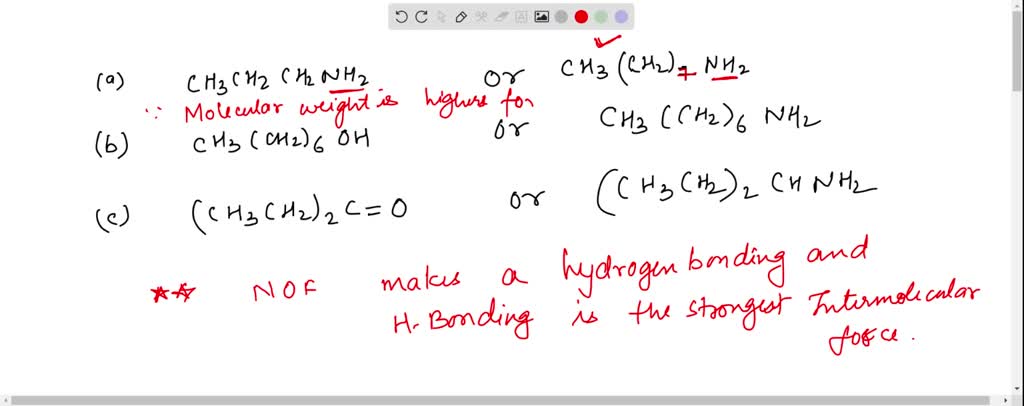 (a) CH3CH2 CH2NH2 or CH3(CH2)7 NH2
∵ Molecular weight is highers for
(b) CH3(CH2)6 OH or CH3(CH2)6 NH2
(c) (CH3CH2)2 C=O or (CH3CH2)2 CHNH2
** NOF makes a hydrogen bonding and
H-Bonding is the strongest Intermolecular
force.